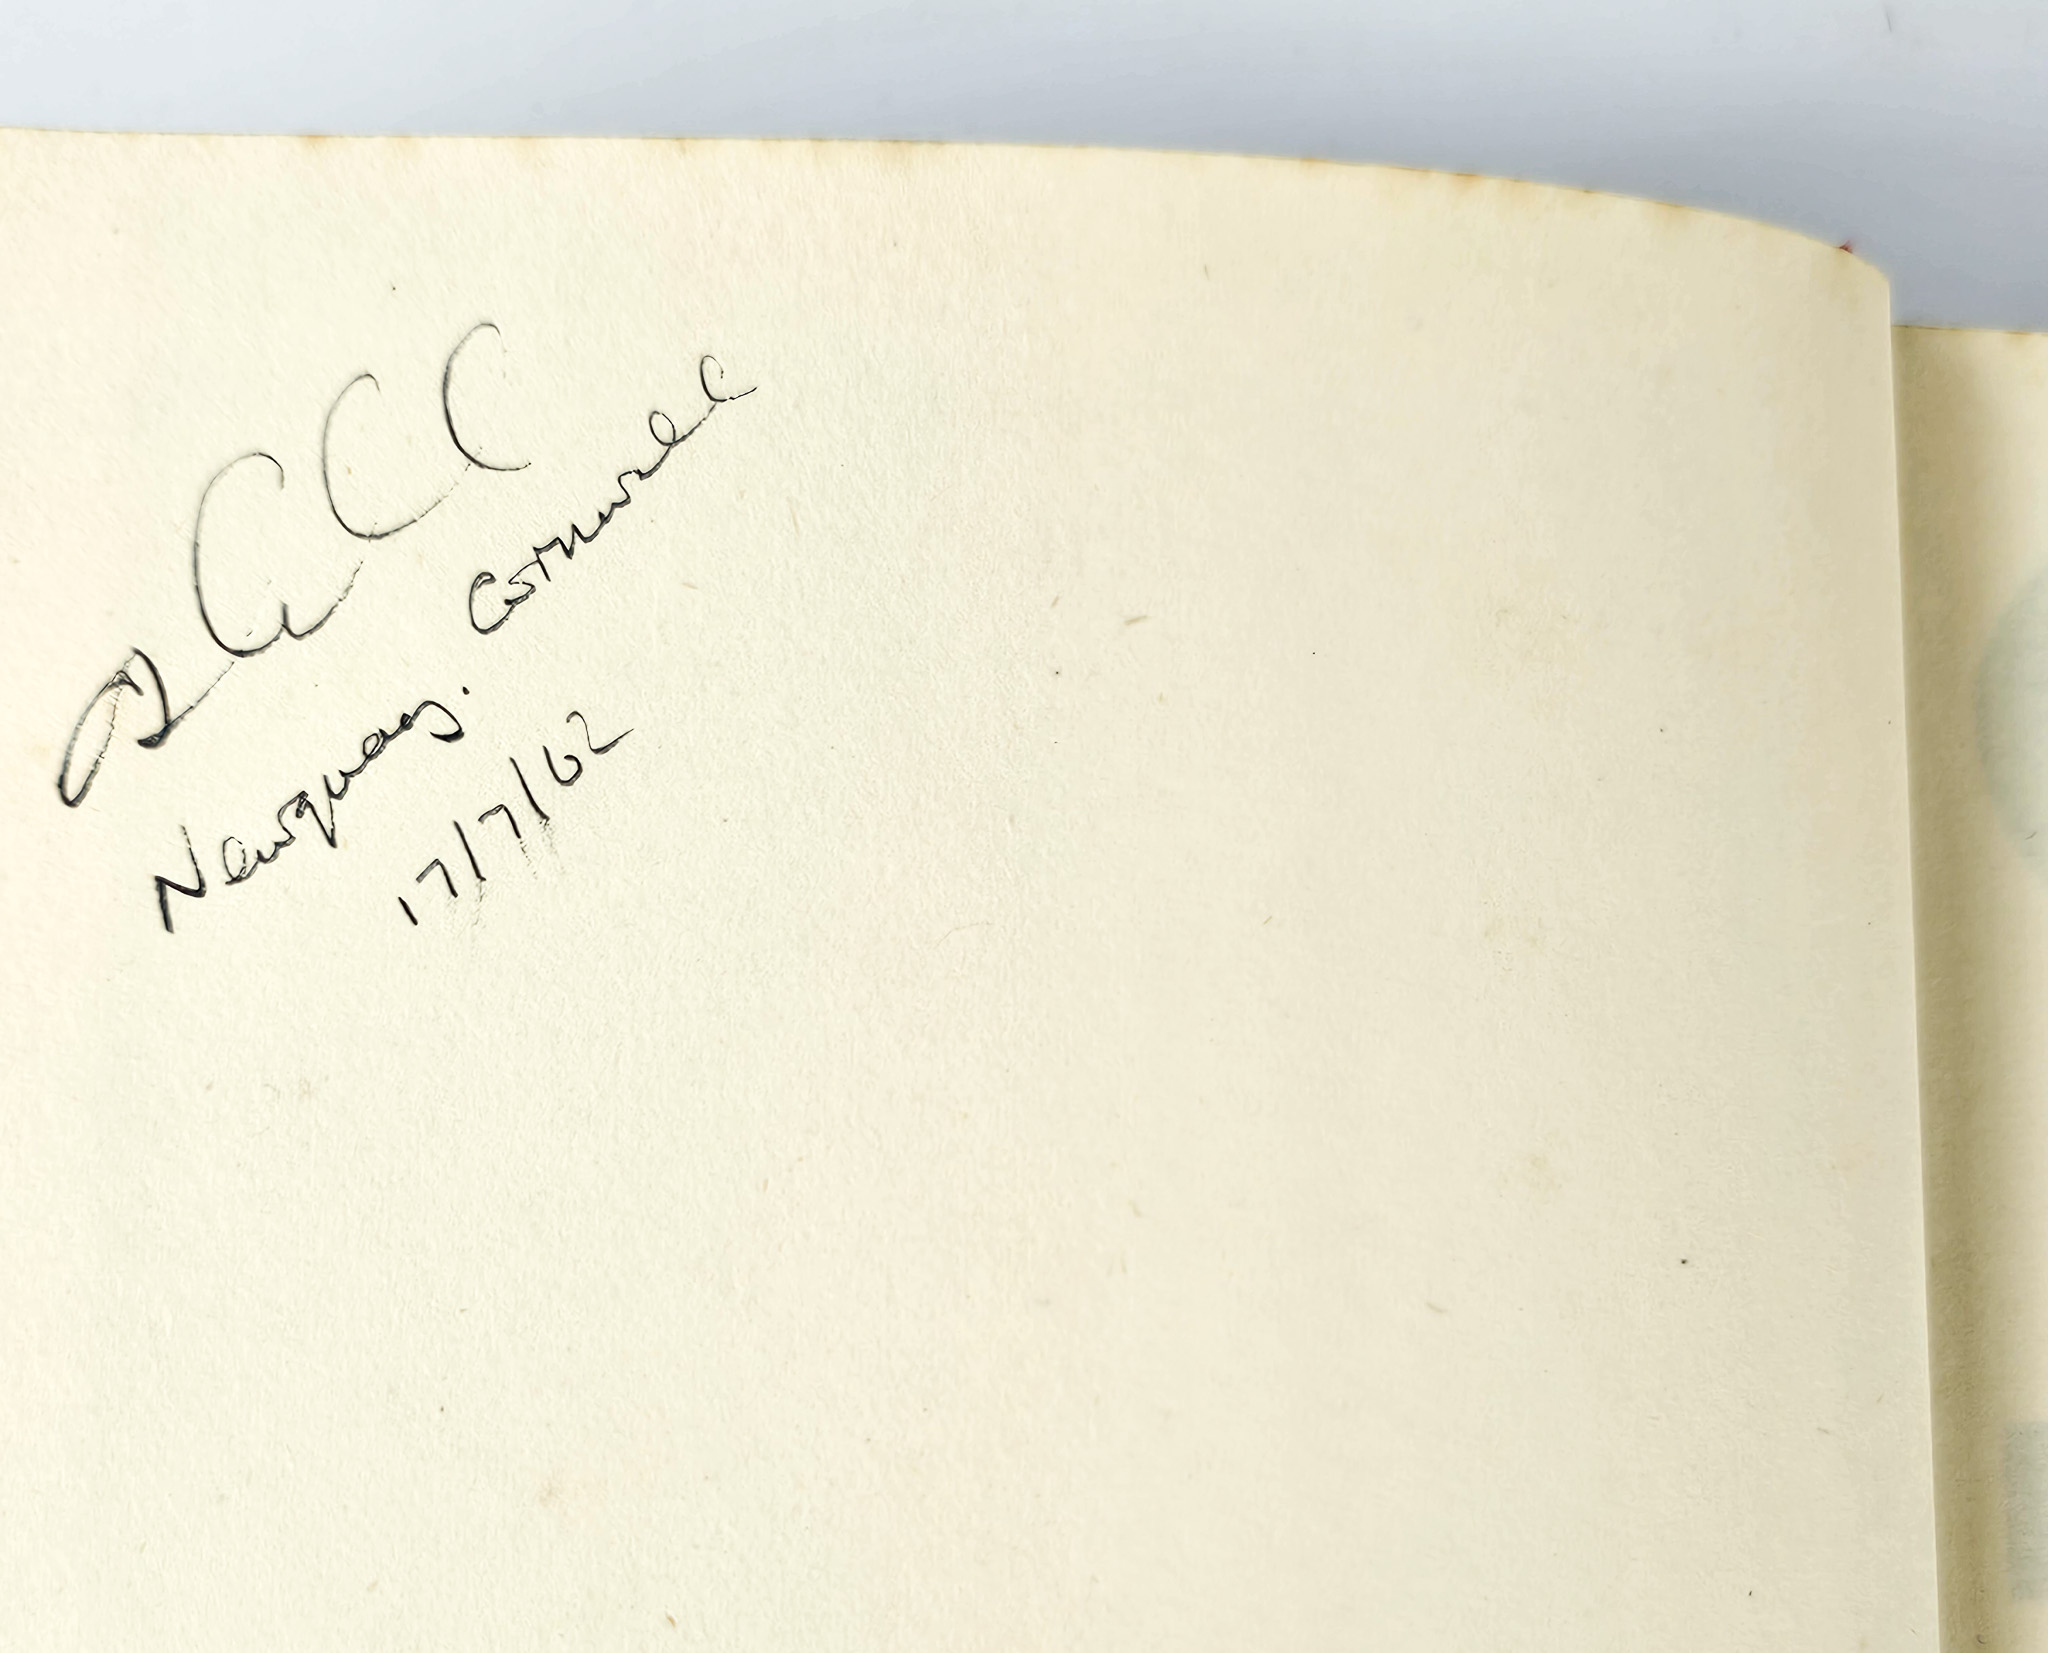 Newquay. Cornwall
17/7/62